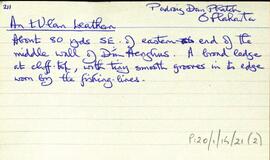 211
Padraig Dan Phatch
O Flaherta
An tUlan Leathan
About 80 yds SE. of eastern end of the
middle wall of Dún Aenghus. A broad ledge
at cliff-top, with tiny smooth grooves in its edge
worn by the fishing-lines.
P120/1/14/21 (2)